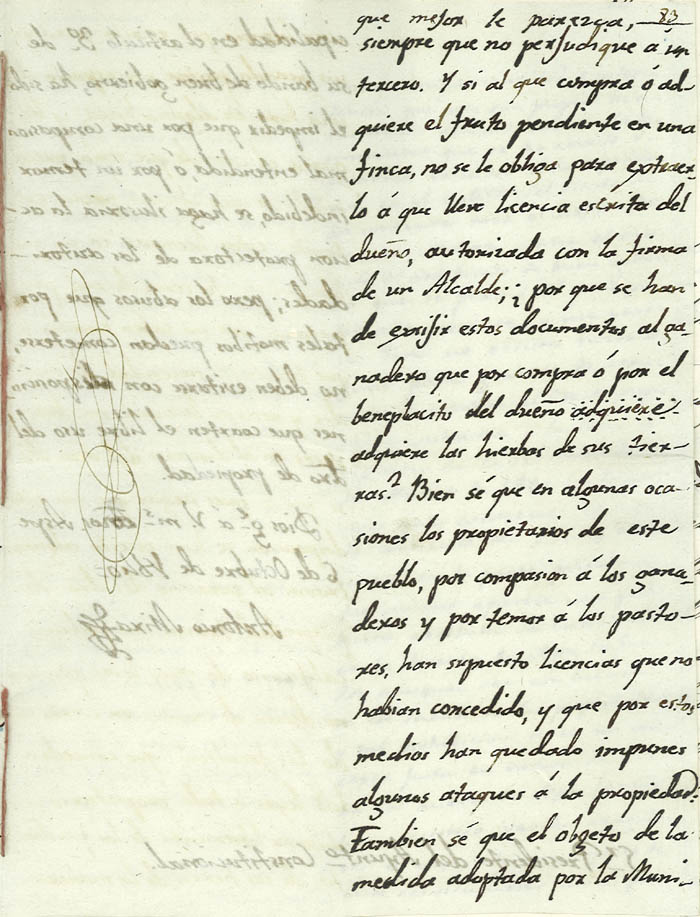 83
que mejor le parezca,
siempre que no perjudique á un
tercero. Y si al que compra ó ad-
quiere el fruto pendiente en una
finca, no se le obliga para extraer-
lo á que lleve licencia escrita del
dueño, autorizada con la firma
de un Alcalde; ¿ por que se han
de exijir estos documentos al ga-
nadero que por compra ó por el
beneplacito del dueño adquiere
adquiere las hierbas de sus tier-
ras? Bien sé que en algunas oca-
siones los propietarios de este
pueblo, por compasion á los gana-
deros y por temor á los pasto-
res, han supuesto licencias que no
habian concedido, y que por estos
medios han quedado impunes
algunos ataques á la propiedad.
Tambien sé que el objeto de la
medida adoptada por la Muni-